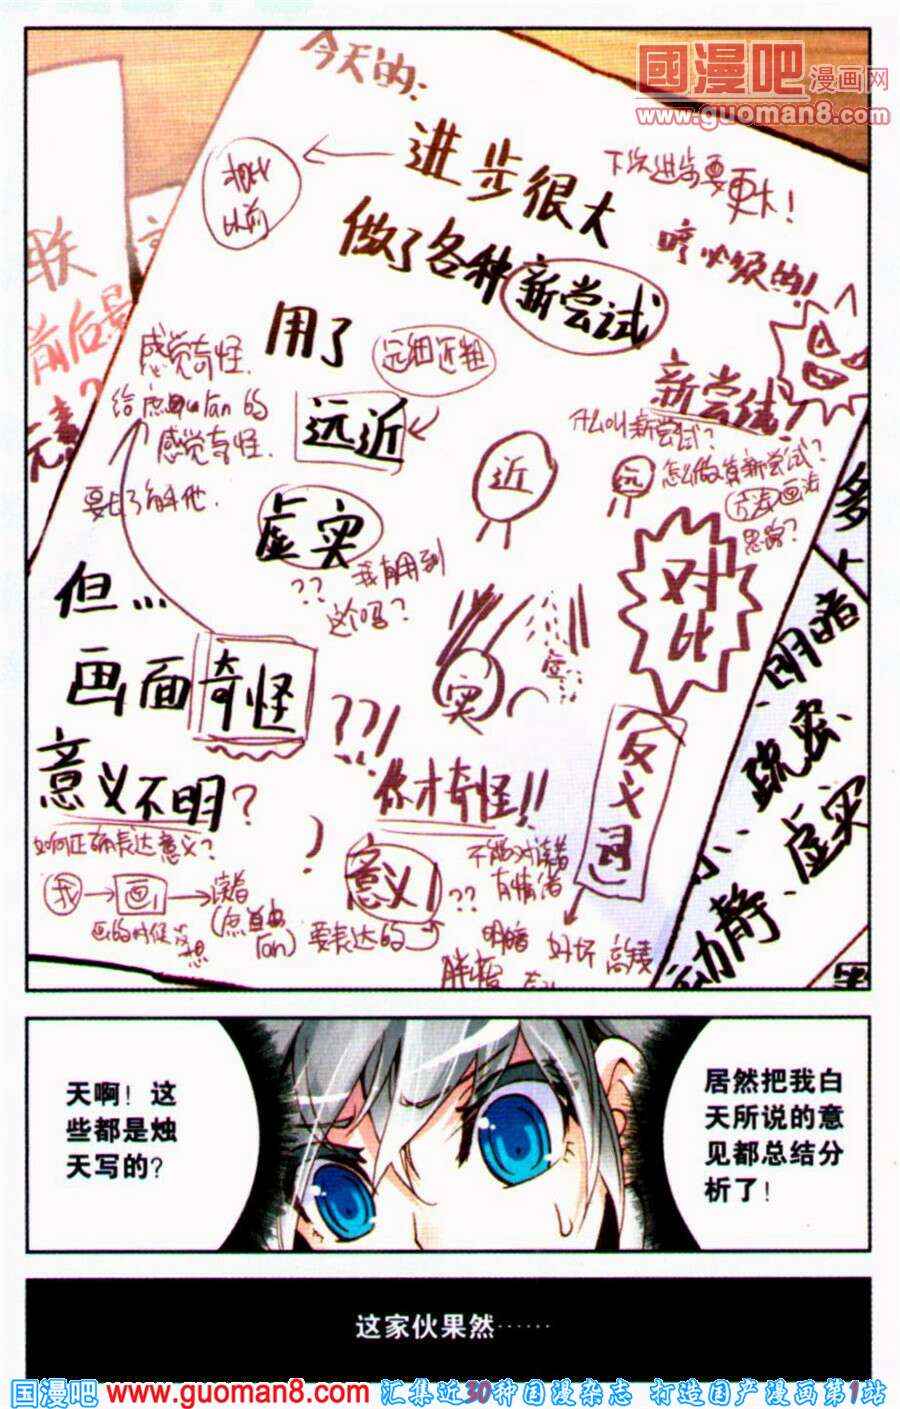 國漫吧漫画网
www.guoman8.com
今天的:
进步很大
相比
以前
下次进步要更大!
做了各种新尝试
哼必须的!
用了
远细近粗
感觉奇怪.
给点由ran的
感觉奇怪.
远近
新尝试
什么叫新尝试?
怎么做算新尝试?
方法画法
思路?
近
远
虚实
?? 我有用到
这个吗?
对比
但…
画面奇怪
??!
实
虚
意义不明?
你才奇怪!!
反义词
如何正确表达意义?
我→画→读者
(点自由
ran)
画的时候
要表达的
?
意义!
??
不能对读者
有情绪
明暗
好坏
高矮
胖瘦
联
前后景
元素?
多
明暗
疏密
大小、虚实
动静、
天啊!这
些都是烛
天写的?
居然把我白
天所说的意
见都总结分
析了!
这家伙果然……
国漫吧 www.guoman8.com 汇集近30种国漫杂志 打造国产漫画第1站